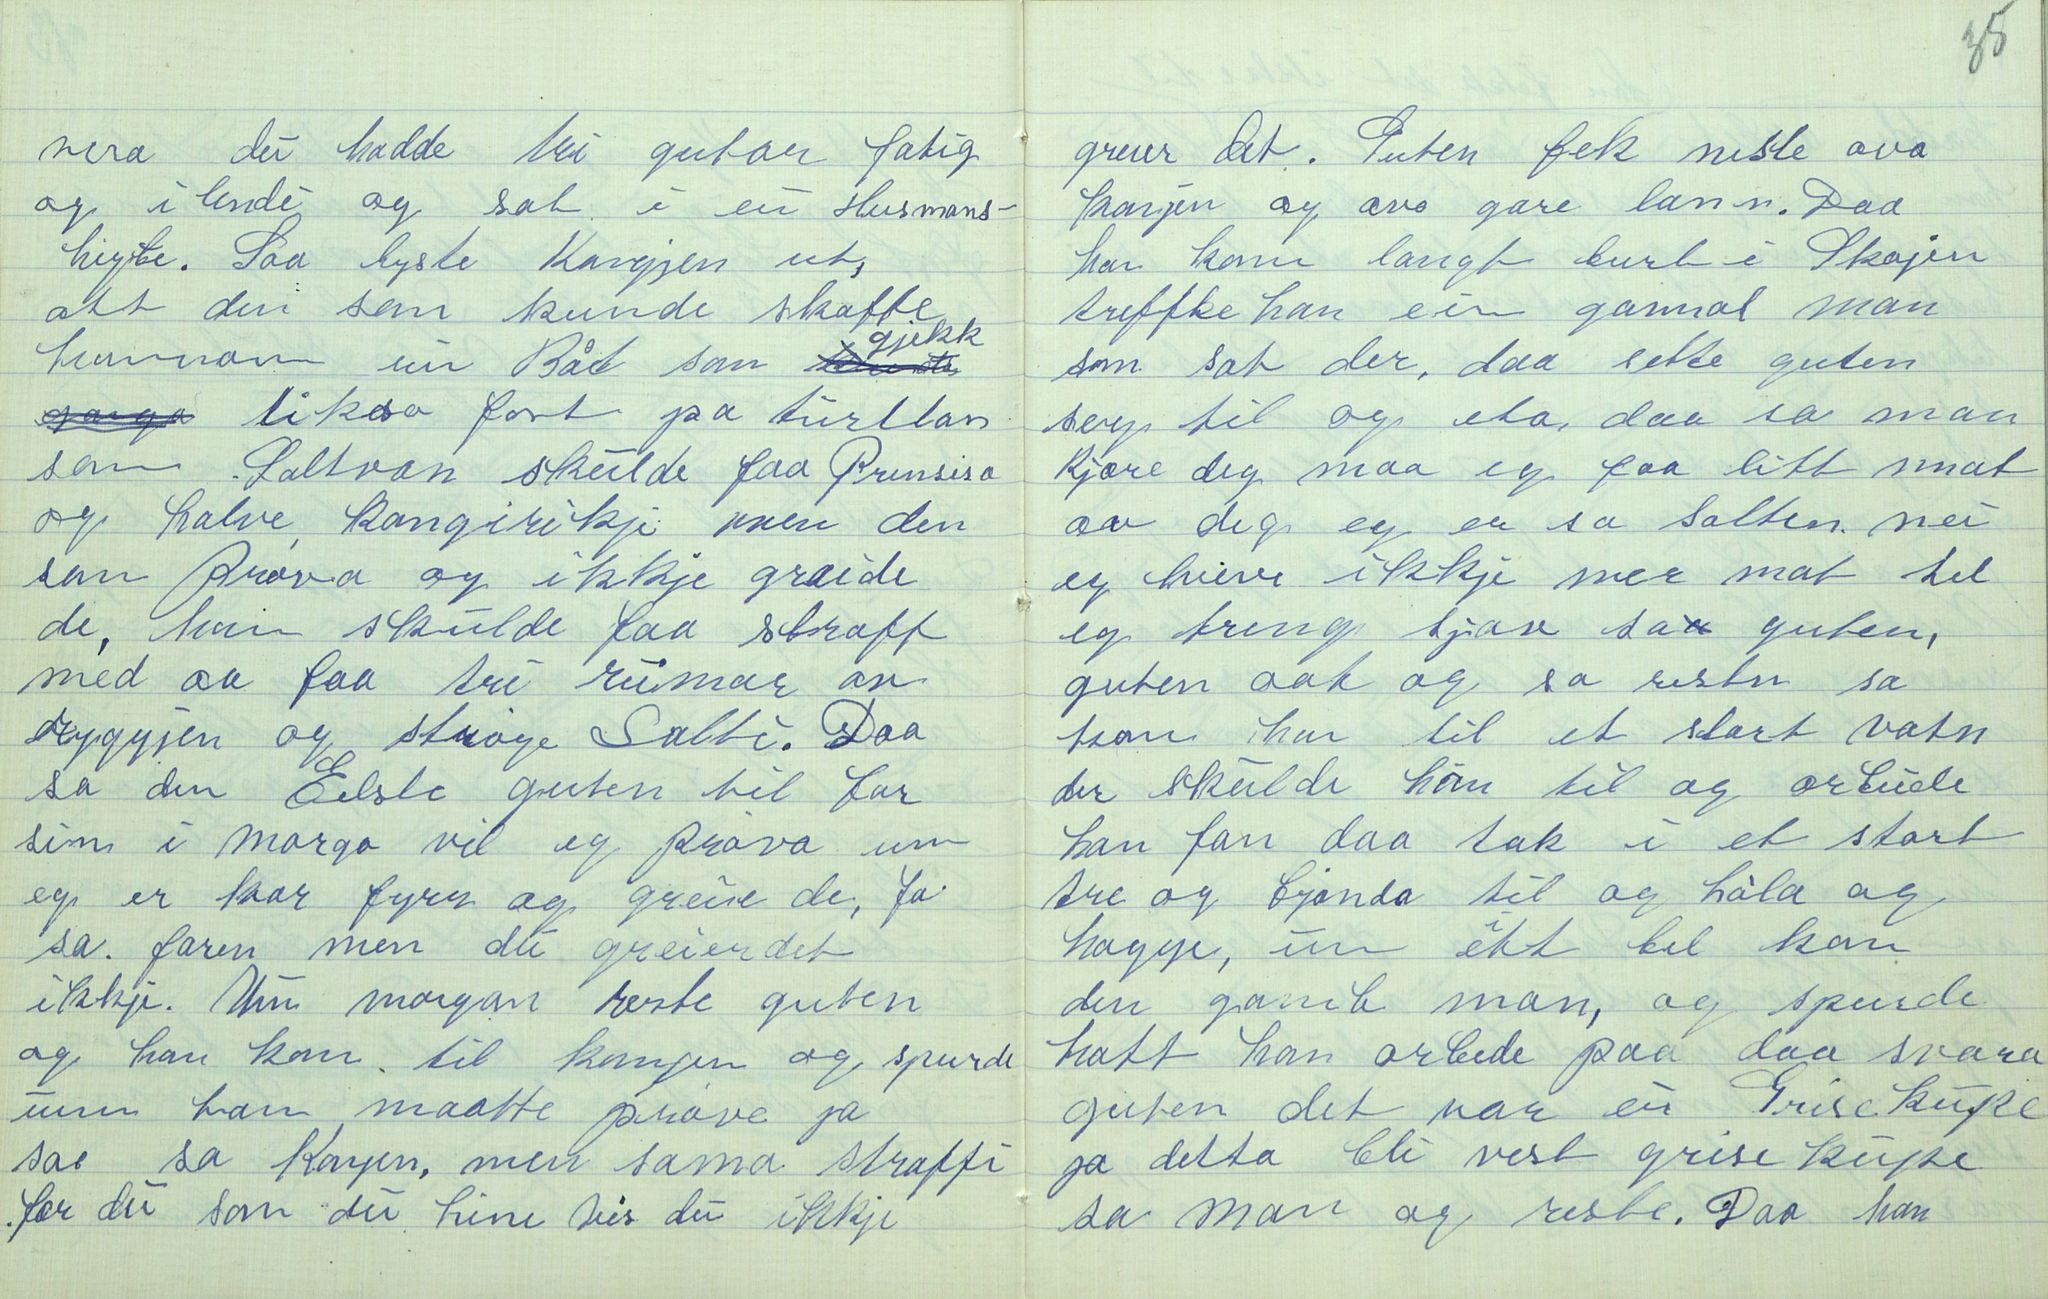 vera dei hadde tri gutar fatig
og i lendi og sat i ei Husmans-
hiytte. Saa lyste Kongjen ut,
att den som kunde skaffe
hunnom ein Båt som gjekk
likeso fort pa turtlan
som Saltvan skulde faa Prinsisa
og halve kongirikji men den
som Prøva og ikkje greide
de, han skulde faa straff
med aa faa tri reimar av
ryggjen og strøye Salt i. Daa
sa den Eelste guten til far
sin i morgo vil eg prøva um
eg er kar fyre og greie de, ja
sa. faren men du greier det
ikkje. Um morgan reste guten
og han kom til kongjen og spurde
um han maatte prøve ja
sae sa Kongjen, men sama straffi
for du som dei hine vis du ikkje
35
greier det. Guten fek niste ava
kongjen og ava gare lann. Daa
han kom langt burt i Skojen
treffte han ein gammal man
som sat der, daa sette guten
seg til og eta, daa sa man
Kjære deg maa eg faa litt mat
av deg eg er so solten. nei
eg heve ikkje mer mat hel
eg treng sjøv sa guten,
guten aat og so restn so
kom han til et stort vatn
der skulde han til og arbeide
han fan daa tak i et stort
tre og bjønda til og håla og
hogge, um eitt bel kom
den gamle man, og spurde
hatt han arbede paa daa svara
guten det var ei Grisekupe
ja detta bli vest grise kupe
sa man og reste. Daa han